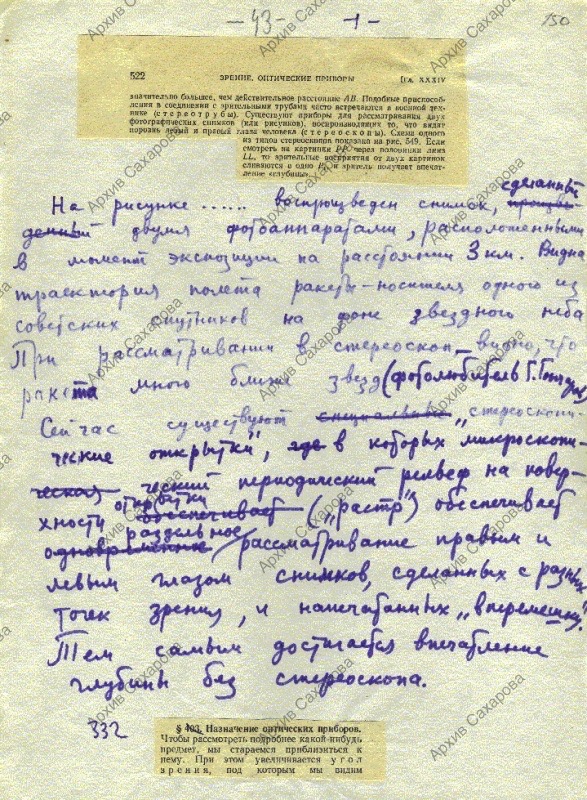 — 43 — — 1 — 150
522 ЗРЕНИЕ. ОПТИЧЕСКИЕ ПРИБОРЫ [ГЛ. XXXIV
значительно большее, чем действительное расстояние АВ. Подобные приспособ-
ления в соединении с зрительными трубами часто встречаются в военной тех-
нике (стереотрубы). Существуют приборы для рассматривания двух
фотографических снимков (или рисунков), воспроизводящих то, что видят
порознь левый и правый глаза человека (стереоскопы). Схема одного
из типов стереоскопов показана на рис. 549. Если
смотреть на картинки РР через половинки линз
LL, то зрительные восприятия от двух картинок
сливаются в одно Р, и зритель получает впечат-
ление «глубины».
сделанный
На рисунке ...... воспроизведен снимок,
двумя фотоаппаратами, расположенными
в момент экспозиции на расстоянии 3 км. Видна
траектория полета ракеты-носителя одного из
советских спутников на фоне звездного неба
При рассматривании в стереоскоп видно, что
ракета много ближе звезд (фотолюбитель Г.
Сейчас существуют специальные „стереоскопи-
ческие открытки", где в которых микроскопи-
ческая ческий периодический рельеф на повер-
открытки
хности обеспечивает („растр") обеспечивает
раздельное
одновременное рассматривание правым и
левым глазом снимков, сделанных с разных
точек зрения, и напечатанных „вперемешку".
Тем самым достигается впечатление
глубины без стереоскопа.
332
§ 403. Назначение оптических приборов.
Чтобы рассмотреть подробнее какой-нибудь
предмет, мы стараемся приблизиться к
нему. При этом увеличивается угол
зрения, под которым мы видим
Архив Сахарова